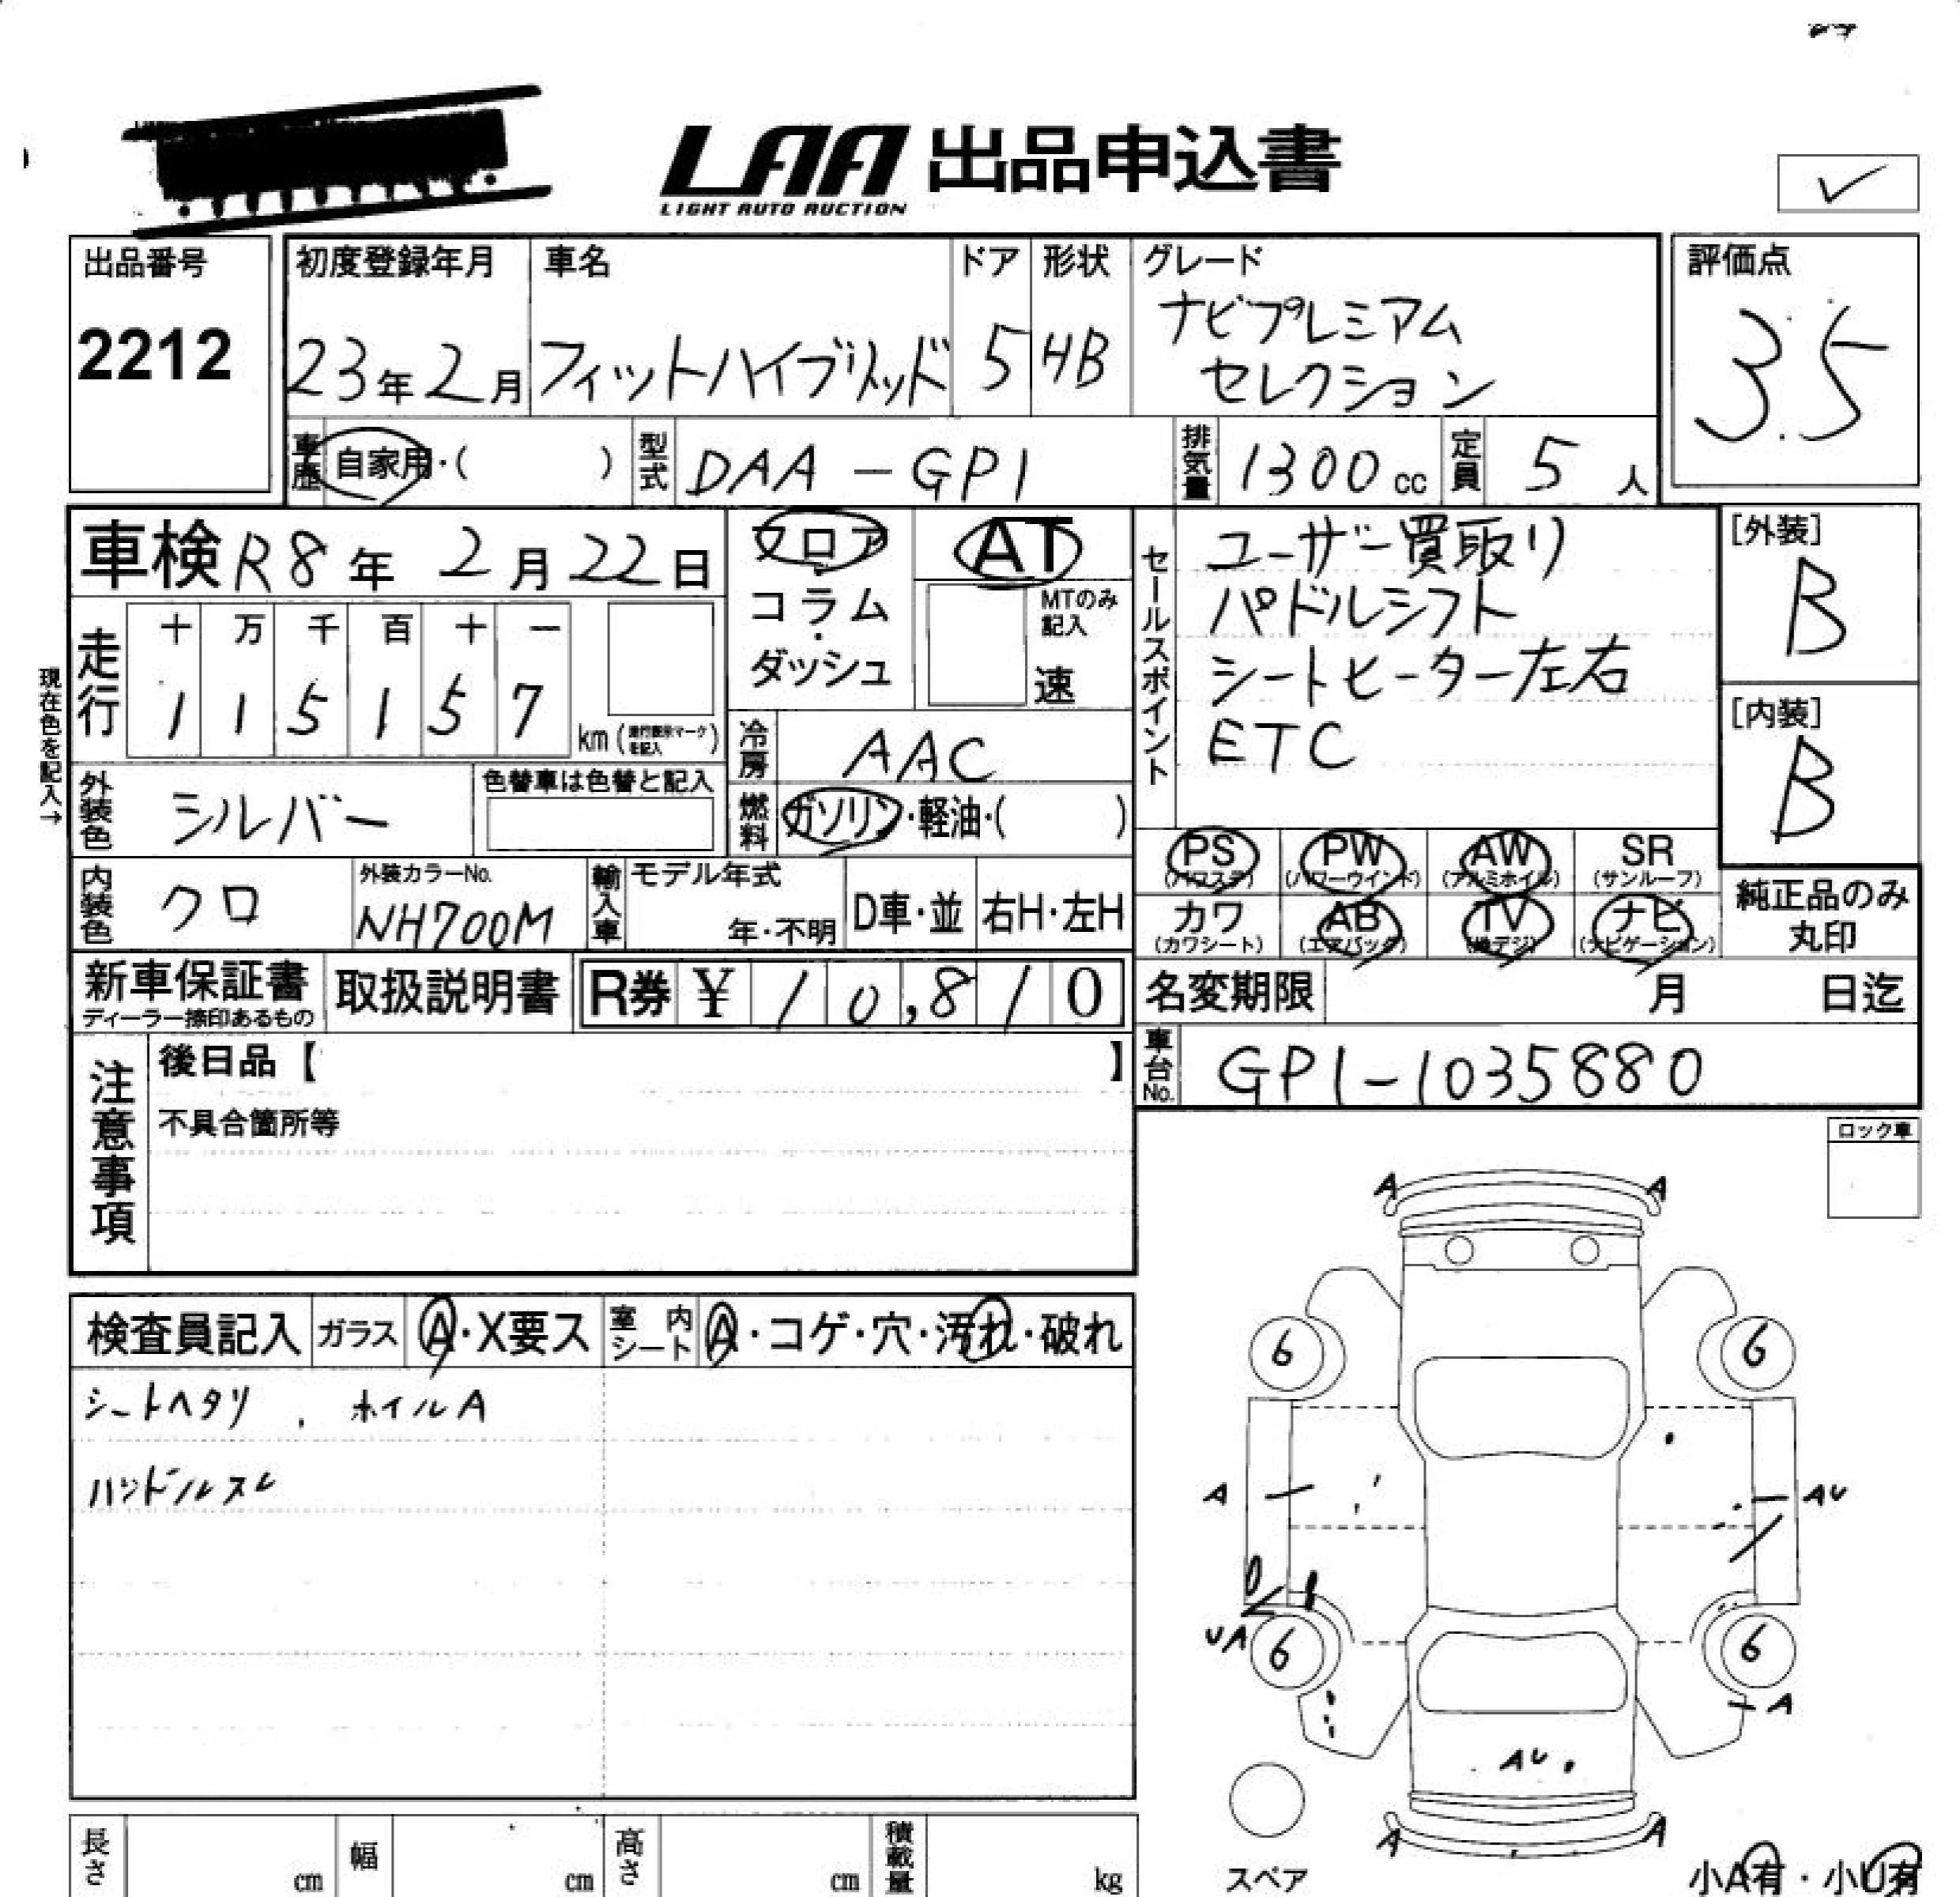 LAA 出品申込書
LIGHT AUTO AUCTION
✓
出品番号
2212
初度登録年月
23年2月
車名
フィットハイブリッド
ドア
5
形状
HB
グレード
ナビプレミアム
セレクション
評価点
3.5
車歴 自家用・( )
型式 DAA-GP1
排気量 1300cc
定員 5人
車検 R8年 2月 22日
フロア・コラム・ダッシュ
AT
MTのみ記入
速
現在色を記入→
走行
十 万 千 百 十 一
1 1 5 1 5 7
km(走行表示マークを記入)
冷房 AAC
外装色 シルバー
色替車は色替と記入
燃料 ガソリン・軽油・( )
内装色 クロ
外装カラーNo.
NH700M
輸入車
モデル年式
年・不明
D車・並
右H・左H
セールスポイント
ユーザー買取り
パドルシフト
シートヒーター左右
ETC
[外装]
B
[内装]
B
PS (パワステ)
PW (パワーウインド)
AW (アルミホイル)
SR (サンルーフ)
カワ (カワシート)
AB (エアバッグ)
TV (地デジ)
ナビ (ナビゲーション)
純正品のみ
丸印
新車保証書
ディーラー捺印あるもの
取扱説明書
R券 ¥ 10,810
名変期限 月 日迄
車台No. GP1-1035880
注意事項
後日品【 】
不具合箇所等
ロック車
検査員記入
ガラス A・X要ス
室内シート A・コゲ・穴・汚れ・破れ
シートヘタリ、 ホイルA
ハンドルスレ
A A
6 6
A AU
UA
6 6
A
AU
A A
スペア
小A有・小U有
長さ cm
幅 cm
高さ cm
積載量 kg